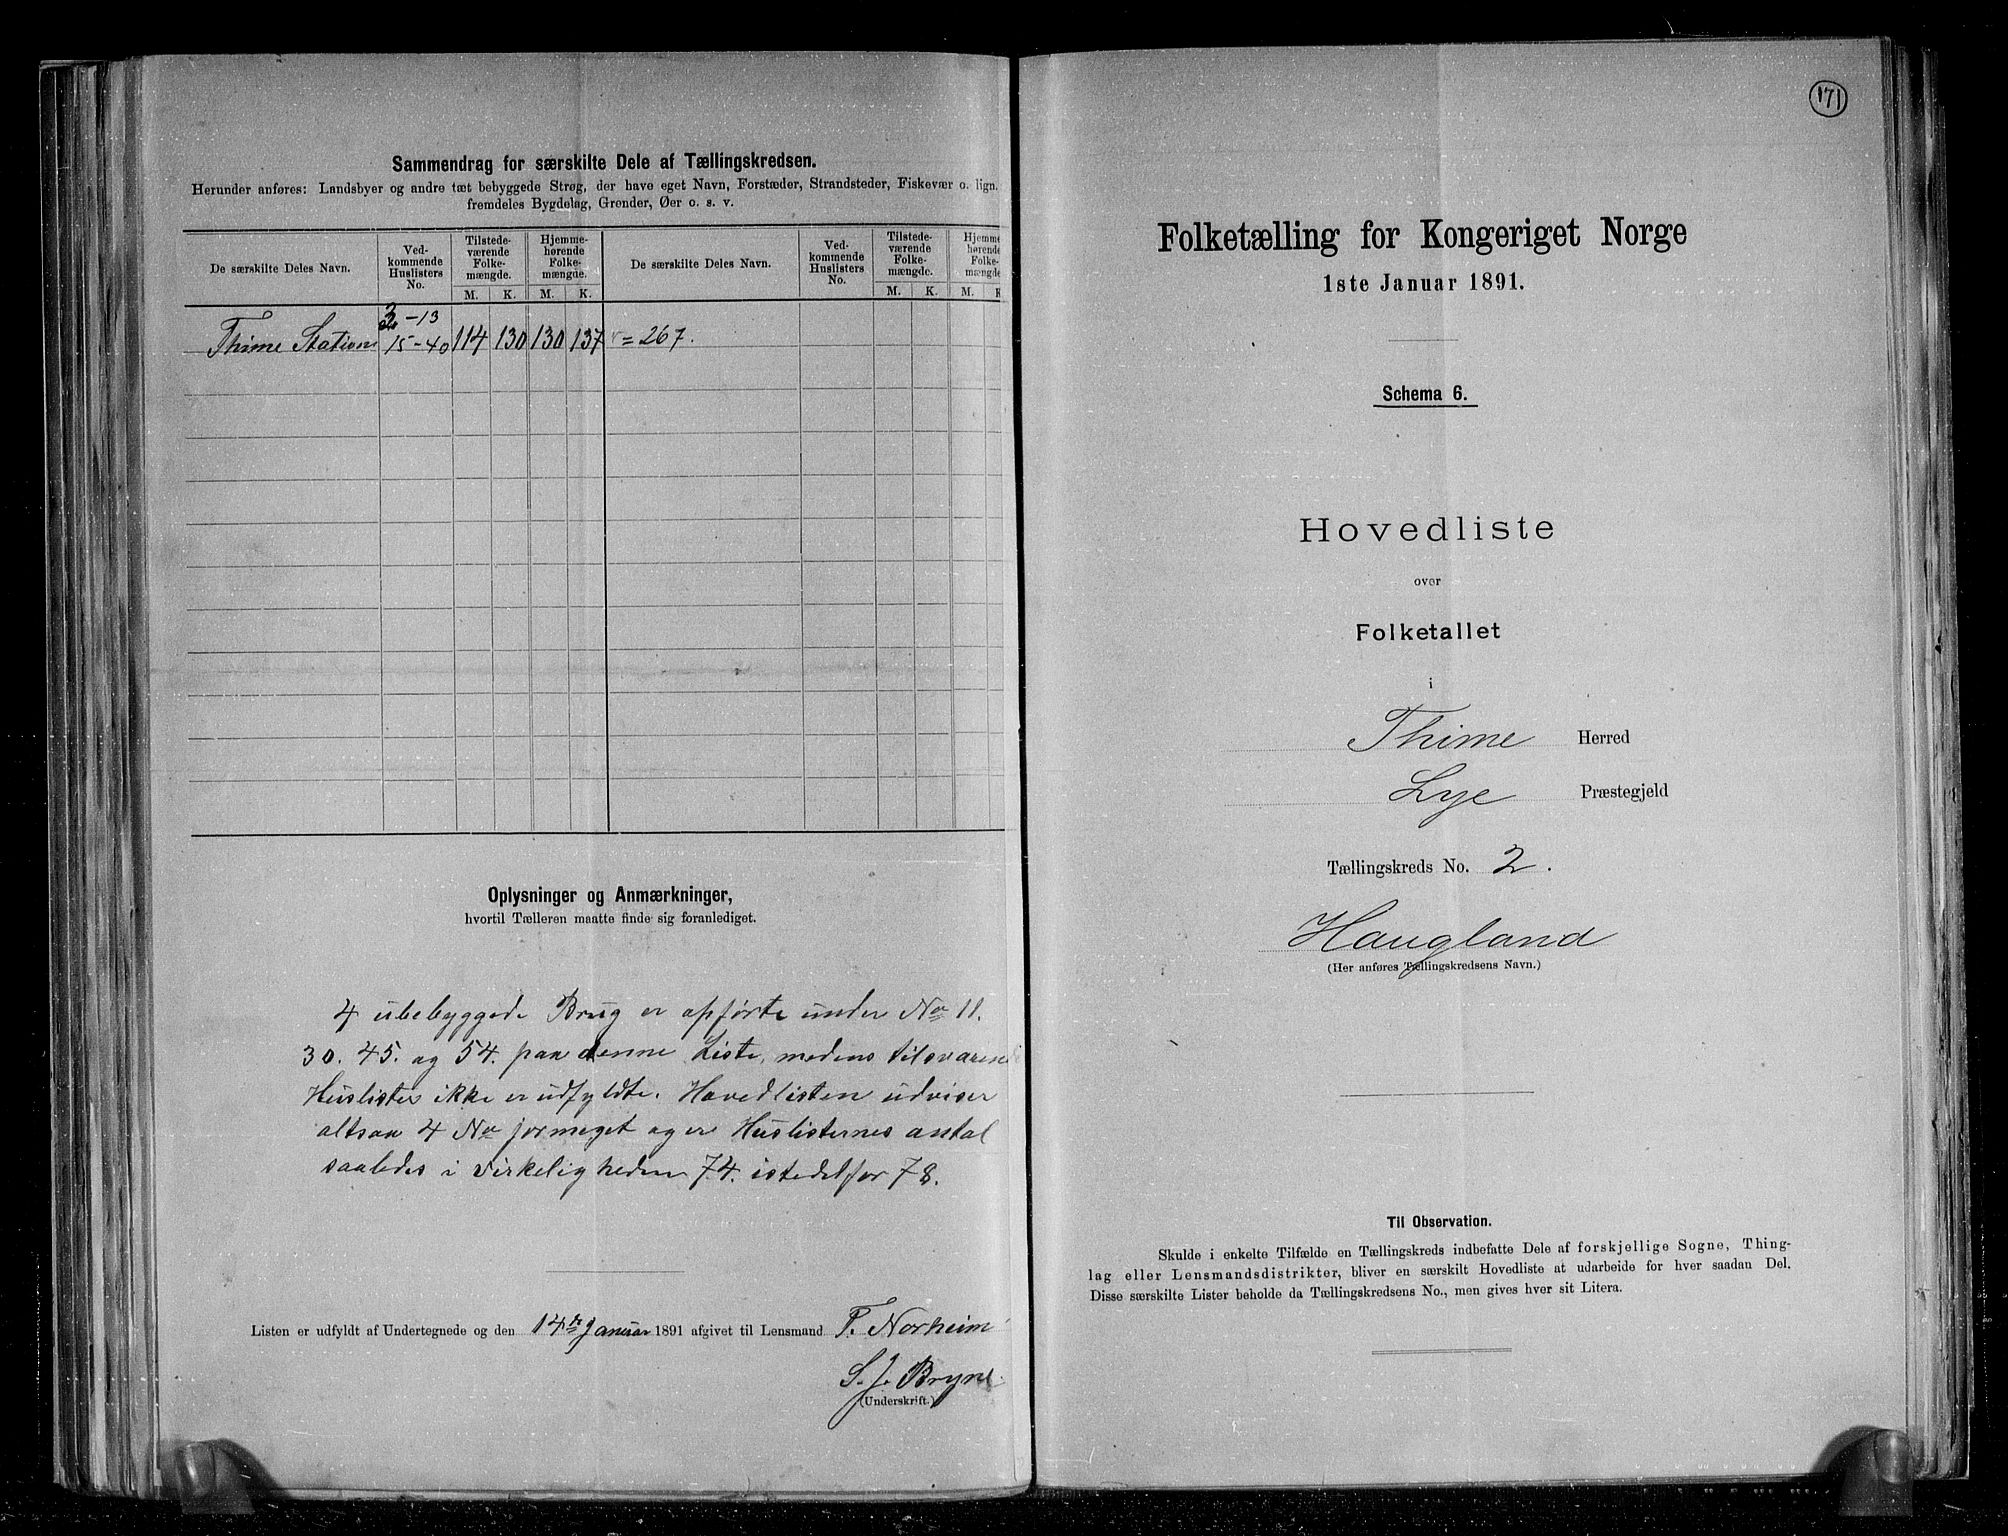 Sammendrag for særskilte Dele af Tællingskredsen.
Herunder anføres: Landsbyer og andre tæt bebyggede Strøg, der have eget Navn, Forstæder, Strandsteder, Fiskevær o. lign.
fremdeles Bygdelag, Grender, Øer o. s. v.
De særskilte Deles Navn.
Ved-
kommende
Huslisters
No.
Tilstede-
værende
Folke-
mængde.
Hjemme-
hørende
Folke-
mængde.
De særskilte Deles Navn.
Ved-
kommende
Huslisters
No.
Tilstede-
værende
Folke-
mængde.
Hjemme
hørende
Folke-
mængde
M. K. M. K. M. K. M. K
3-13
Thime Station 15-40 114 130 130 137 = 267.
Oplysninger og Anmærkninger,
hvortil Tælleren maatte finde sig foranlediget.
4 ubebyggede Brug er opførte under No 11.
30. 45. og 54. paa denne Liste, medens tilsvarende
Huslister ikke er udfyldte. Hovedlisten udviser
altsaa 4 No formeget og er Huslisternes antal
saaledes i Virkeligheden 74. istedetfor 78.
Listen er udfyldt af Undertegnede og den 14de Januar 1891 afgivet til Lensmand T. Norheim
S. J. Bryne.
(Underskrift.)
171
Folketælling for Kongeriget Norge
1ste Januar 1891.
Schema 6.
Hovedliste
over
Folketallet
i
Thime Herred
Lye Præstegjeld
Tællingskreds No. 2.
Haugland
(Her anføres Tællingskredsens Navn.)
Til Observation.
Skulde i enkelte Tilfælde en Tællingskreds indbefatte Dele af forskjellige Sogne, Thing-
lag eller Lensmandsdistrikter, bliver en særskilt Hovedliste at udarbeide for hver saadan Del.
Disse særskilte Lister beholde da Tællingskredsens No., men gives hver sit Litera.